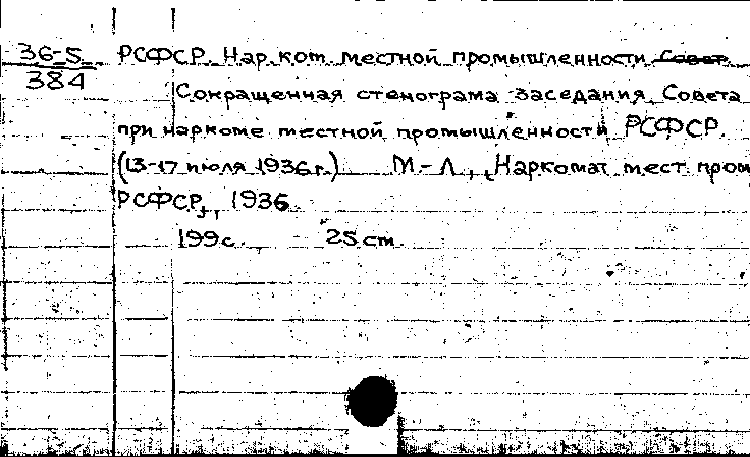 36-5 РСФСР. Нар.ком. местной промышленности Совет
384
Сокращенная стенограма заседания Совета
при наркоме местной промышленности РСФСР.
(13-17 июля 1936 г.) М-Л, Наркомат мест. пром
РСФСР, 1936
199 с. 25 см.